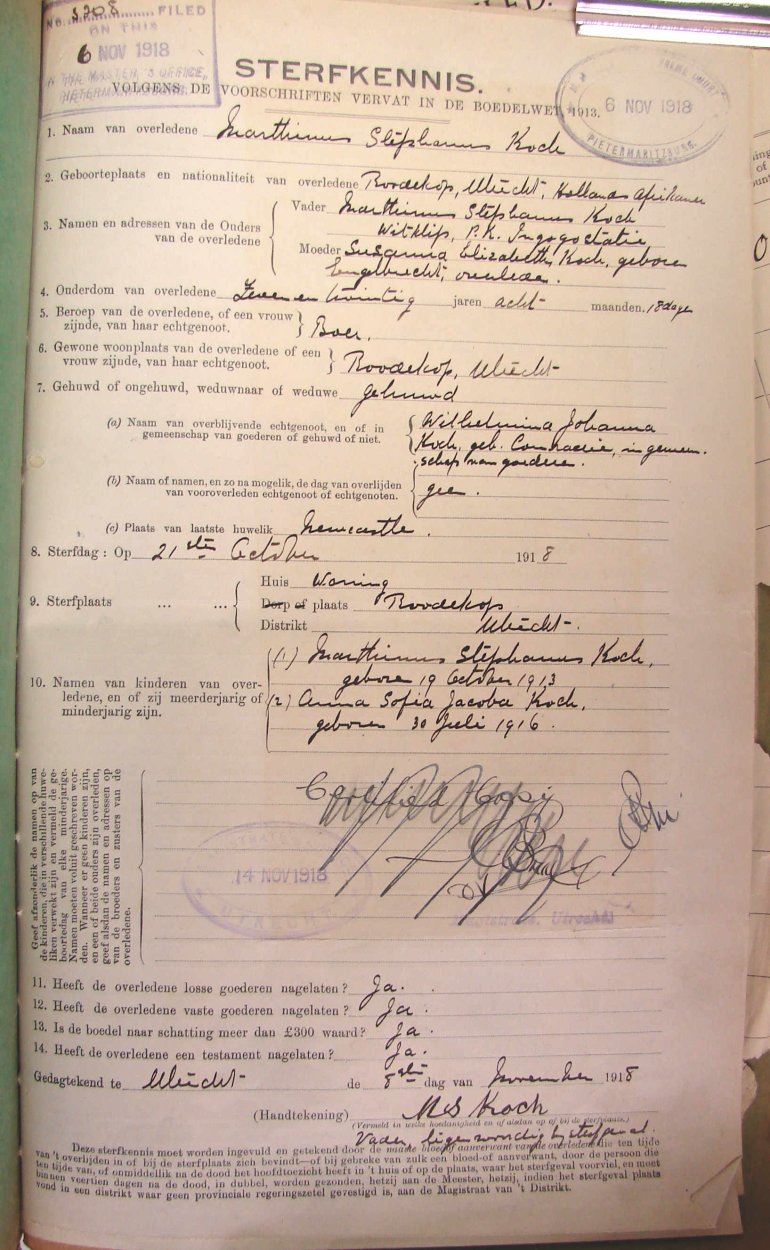 No. 3208 FILED
ON THIS
6 NOV 1918
IN THE MASTER'S OFFICE,
6 NOV 1918
PIETERMARITZBURG.
STERFKENNIS.
VOLGENS DE VOORSCHRIFTEN VERVAT IN DE BOEDELWET, 1913.
1. Naam van overledene Marthinus Stephanus Koch
2. Geboorteplaats en nationaliteit van overledene Roodekop, Utrecht, Hollands Afrikaner
3. Namen en adressen van de Ouders van de overledene
Vader Marthinus Stephanus Koch
Witklip, P.K. Ingogostatie
Moeder Susanna Elizabeth Koch, geboren
Engelbrecht, overleden.
4. Onderdom van overledene Zeven en twintig jaren acht maanden. 18 dagen
5. Beroep van de overledene, of een vrouw
zijnde, van haar echtgenoot. Boer.
6. Gewone woonplaats van de overledene of een
vrouw zijnde, van haar echtgenoot. Roodekop, Utrecht
7. Gehuwd of ongehuwd, weduwnaar of weduwe gehuwd
(a) Naam van overblijvende echtgenoot, en of in
gemeenschap van goederen of gehuwd of niet.
Wilhelmina Johanna
Koch, geb. Conradie, in gemeen-
schap van goederen.
(b) Naam of namen, en zo na mogelik, de dag van overlijden
van vooroverleden echtgenoot of echtgenoten.
geen.
(c) Plaats van laatste huwelik Newcastle.
8. Sterfdag: Op 21ste October 1918
9. Sterfplaats ... ...
Huis Woning
Dorp of plaats Roodekop
Distrikt Utrecht.
10. Namen van kinderen van over-
ledene, en of zij meerderjarig of
minderjarig zijn.
(1) Marthinus Stephanus Koch,
geboren 19 October 1913
(2) Anna Sofia Jacoba Koch,
geboren 30 Juli 1916.
Geef afzonderlik de namen op van
de kinderen, die in verschillende huwe-
liken verwekt zijn en vermeld de ge-
boortedag van elke minderjarige.
Namen moeten voluit geschreven wor-
den. Wanneer er geen kinderen zijn,
en een of beide ouders zijn overleden,
geef alsdan de namen en adressen op
van de broeders en zusters van de
overledene.
Certified Copy
14 NOV 1918
UTRECHT
Magistrate, Utrecht
11. Heeft de overledene losse goederen nagelaten? Ja.
12. Heeft de overledene vaste goederen nagelaten? Ja.
13. Is de boedel naar schatting meer dan £300 waard? Ja.
14. Heeft de overledene een testament nagelaten? Ja.
Gedagtekend te Utrecht de 8ste dag van November 1918
(Handtekening) M S Koch
(Vermeld in welke hoedanigheid en of alsdan op of bij de sterfplaats.)
Vader, tegenwoordig by sterfgeval.
Deze sterfkennis moet worden ingevuld en getekend door de naaste bloed- of aanverwant van de overledene die ten tijde
van 't overlijden in of bij de sterfplaats zich bevindt—of bij gebreke van zulk een bloed-of aanverwant, door de persoon die
ten tijde van, of onmiddellik na de dood het hoofdtoezicht heeft in 't huis of op de plaats, waar het sterfgeval voorviel, en moet
binnen veertien dagen na de dood, in dubbel, worden gezonden, hetzij aan de Meester, hetzij, indien het sterfgeval plaats
vond in een distrikt waar geen provinciale regeringszetel gevestigd is, aan de Magistraat van 't Distrikt.